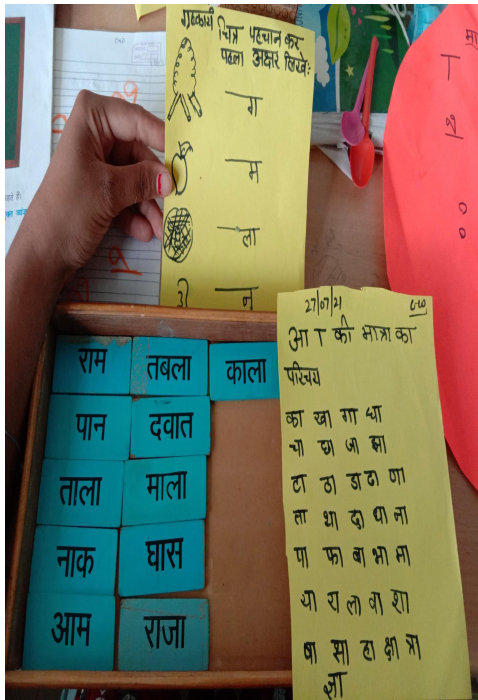 गृहकार्य चित्र पहचान कर
पहला अक्षर लिखे:
ग
म
ला
न
मा
27/07/21
C.W
आ ा की मात्रा का
परिचय
का खा गा घा
चा छा जा झा
टा ठा डा ढा णा
ता था दा धा ना
पा फा बा भा मा
या रा ला वा शा
षा सा हा क्षा त्रा
ज्ञा
राम तबला काला
पान दवात
ताला माला
नाक घास
आम राजा